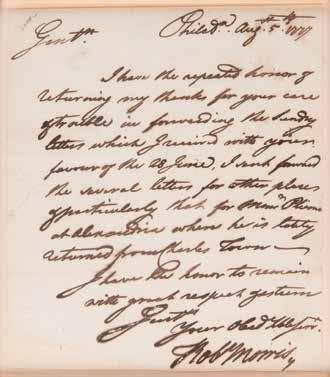 Philad.ª Aug.st 5.th 1777
Gent.m
I have the repeated honor of
returning my thanks for your care
& trouble in forwarding the Sundry
letters which I received with your
favour of the 28 June. I have forwd
the several letters for other places
& particularly that for Mons.r
at Alexandria where he is lately
returned from Charles Town
I have the honor to remain
with great respect & esteem
Gent.m
Your Obed. hble Serv.t
Rob.t Morris